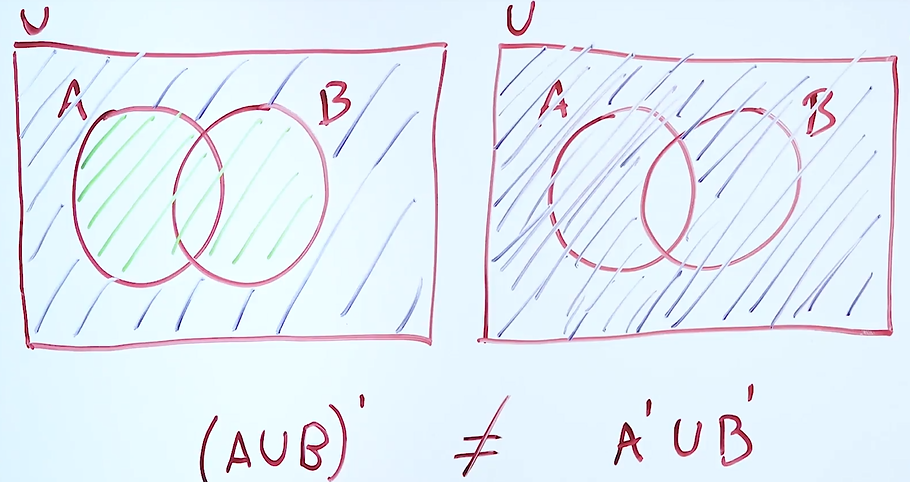 U U
A B A B
(A∪B)' ≠ A'∪B'